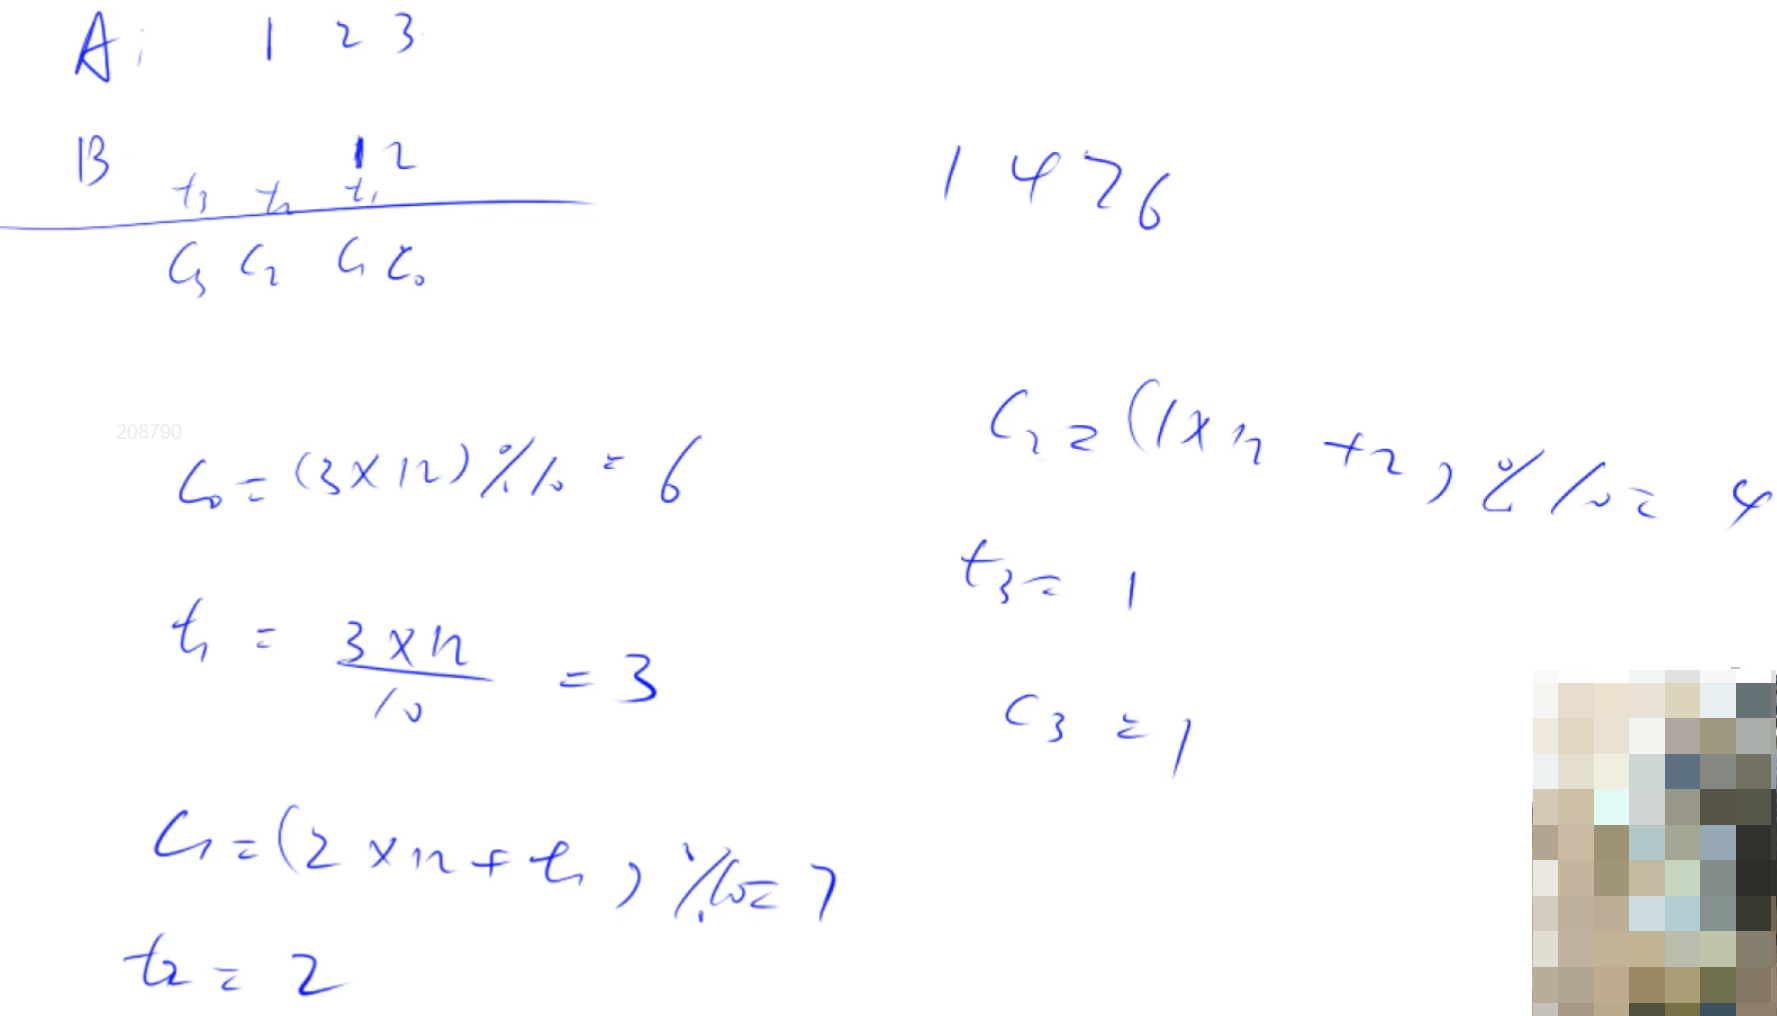 A: 1 2 3
B 12
t₃ t₂ t₁
C₃ C₂ C₁ C₀
1476
208790
C₀ = (3×12)%10 = 6
t₁ = 3×12/10 = 3
C₁ = (2×12+t₁)%10 = 7
t₂ = 2
C₂ = (1×12+2)%10 = 4
t₃ = 1
C₃ = 1